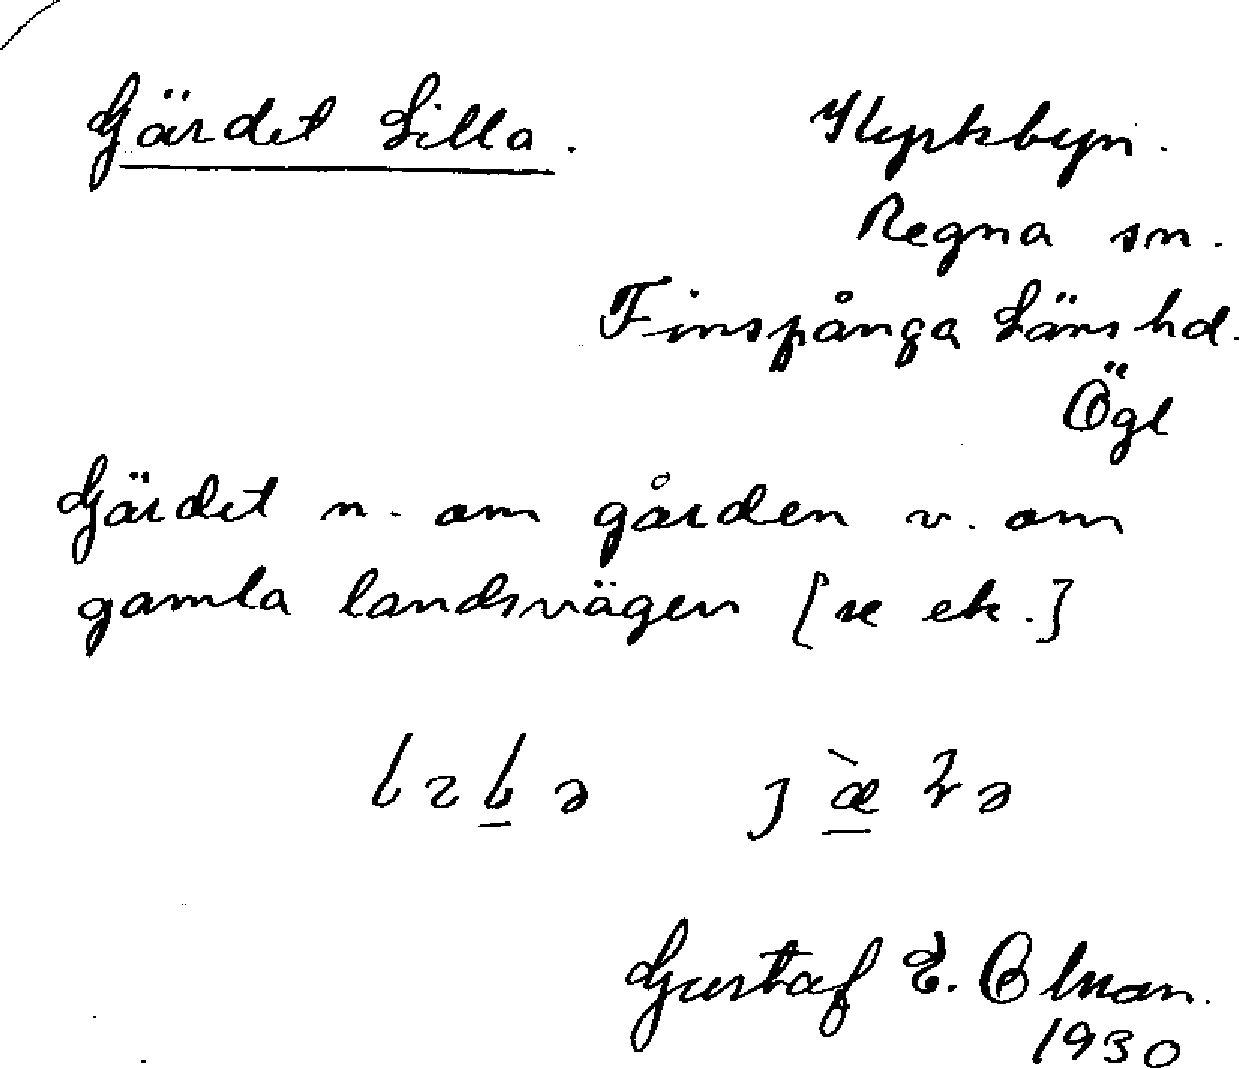 Gärdet Lilla. Kyrkbyn.
Regna sn.
Finspånga Läns hd.
Ögl
Gärdet n. om gården v. om
gamla landsvägen [se ek.]
Gustaf E. Olman.
1930